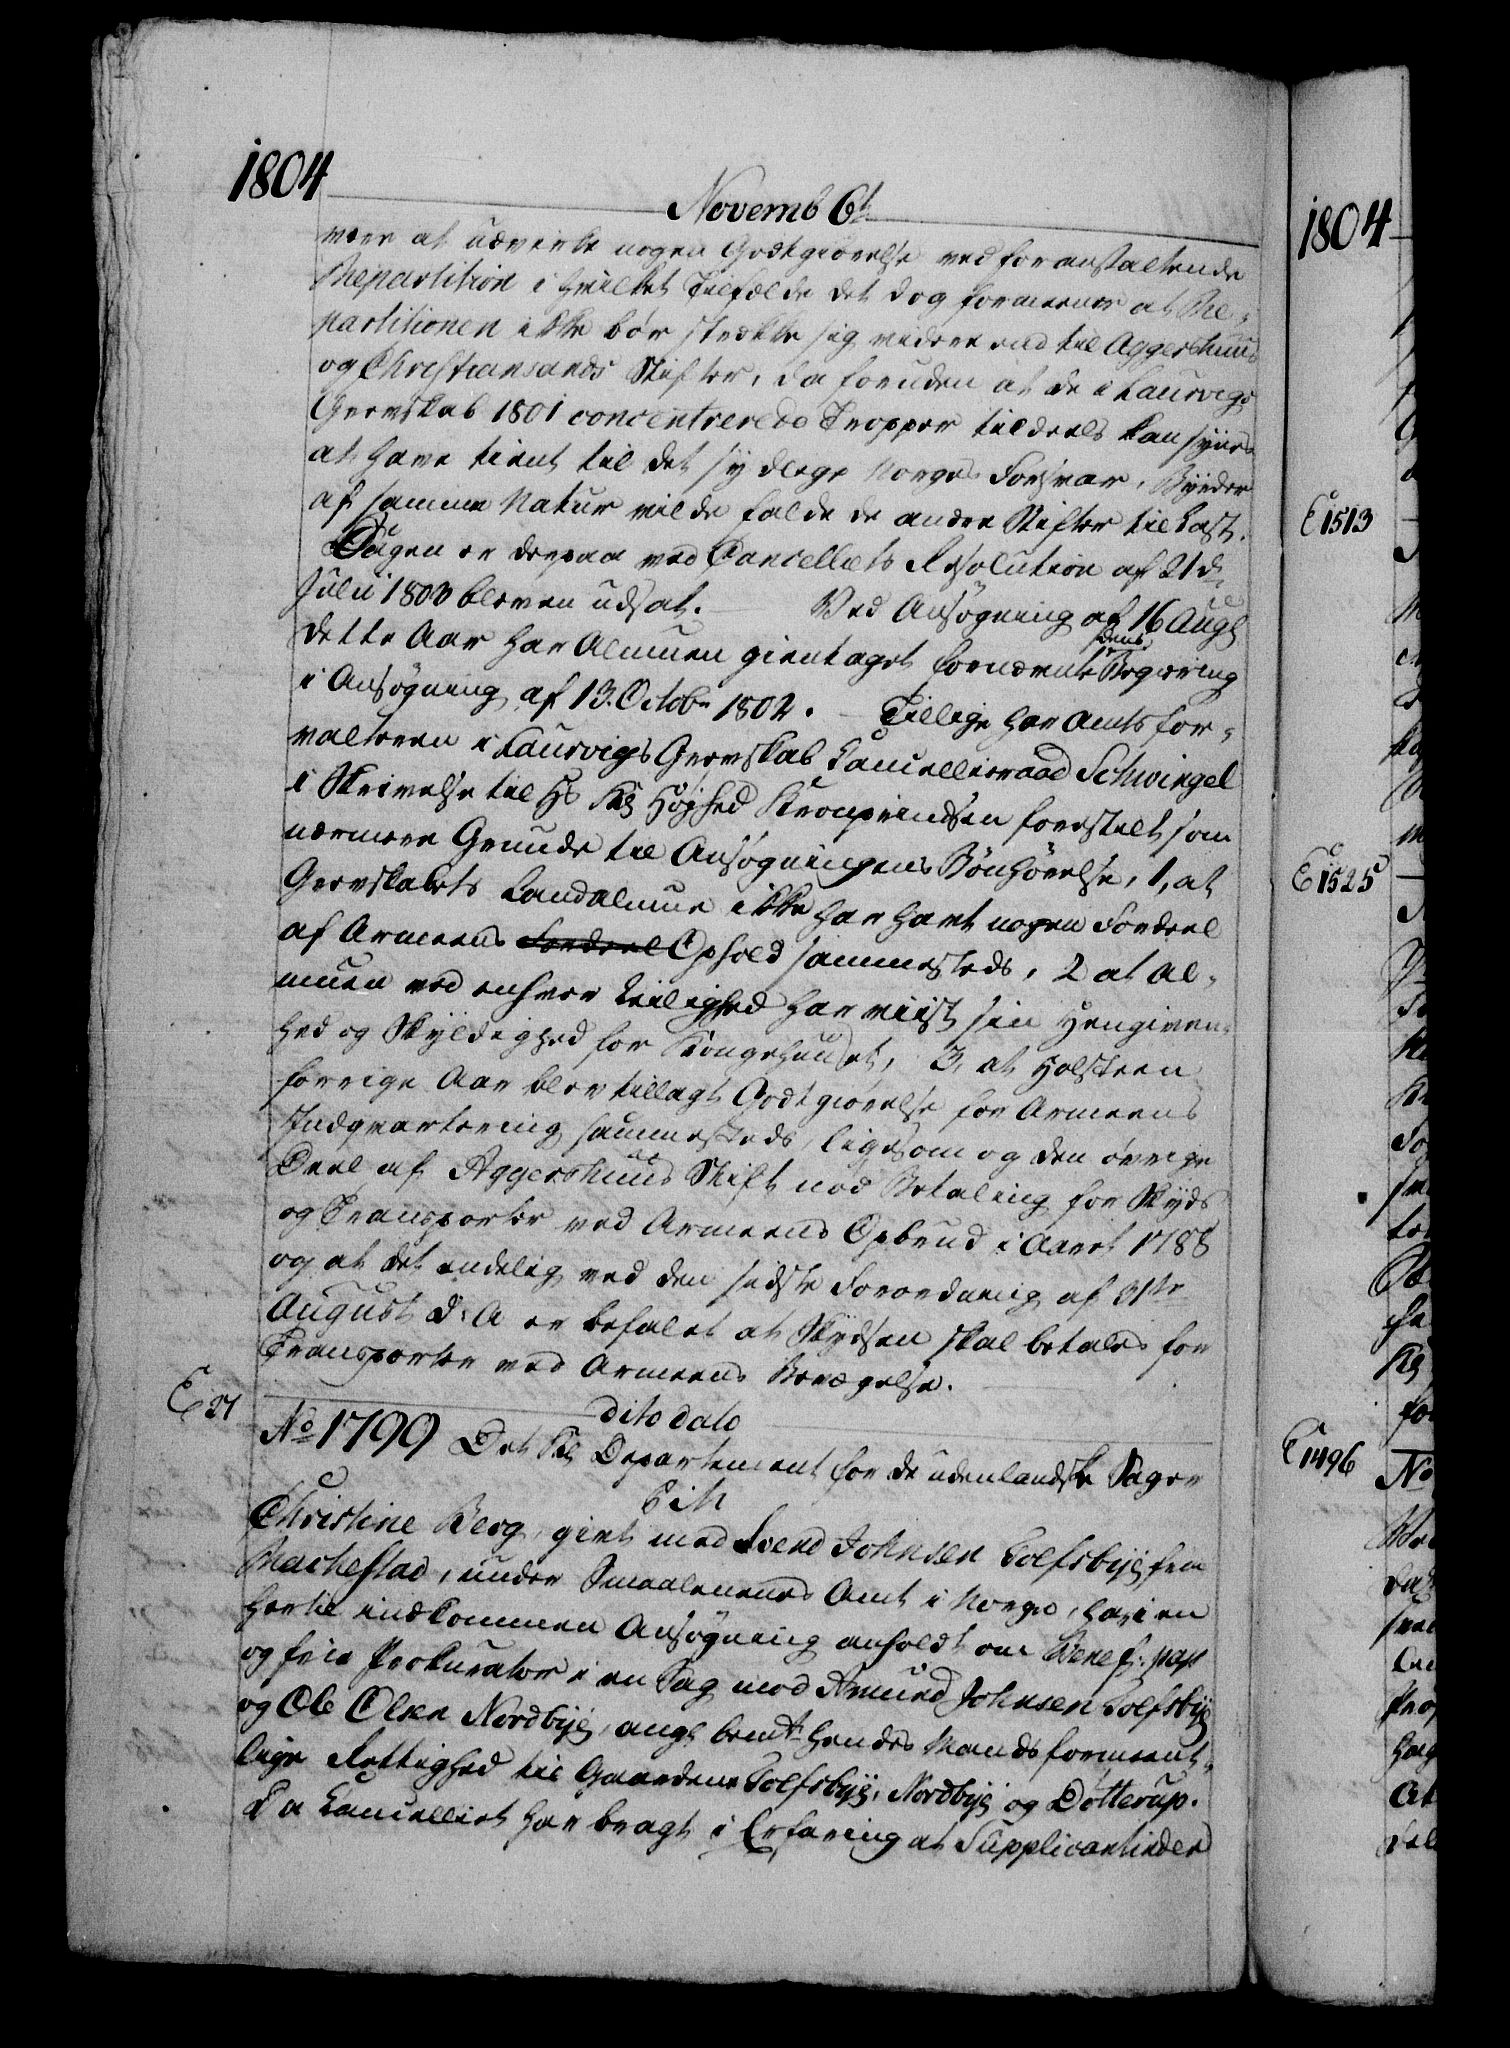 1804
Novemb 6t
være at udvirke nogen Godtgiørelse ved foranstaltende
Repartition i hvilket Tilfælde det dog formeener at Re-
partitionen ikke bør strække sig videre end til Aggershuus
og Christiansands Stifter, da foruden at de i Laurvigs
Grevskab 1801 concentrerede Tropper tildeels kan synes
at have tient til det sydlige Norges Forsvar, Byrder
af samme Natur vilde falde de andre Stifter til Last.
Sagen er derpaa ved Cancelliets Resolution af 21 d
Julii 1803 bleven udsat. Ved Ansøgning af 16 Augs
dette Aar har Almuen gientaget fornævnte dens Begiering
i Ansøgning af 13. Octobr 1802. Tillige har Amtsfor-
valteren i Laurvigs Grevskab Cancellieraad Schwingel
i Skrivelse til Hs Kg Høyhed Kronprindsen forestilt som
nærmere Grunde til Ansøgningens Bønhørelse, 1, at
Grevskabets Landalmue ikke har havt nogen Fordeel
af Armeens Fordeel Ophold sammesteds, 2 at Al-
muen ved enhver Leilighed har viist sin Hengiven-
hed og Skyldighed for Kongehuuset, 3, at Holsteen
forrige Aar blev tillagt Godtgiørelse for Armeens
Indqvartering sammesteds, ligesom og den øvrige
Deel af Aggershuus Stift nød Betaling for Skyds
og Transporter ved Armeens Opbrud i Aaret 1788
og at det endelig ved den sidste Forordning af 31te
August d: A er befalet at Skydsen skal betales for
Transporter ved Armeens Bevægelse.
dito dato
E 27
No 1799 Det Kg Departement for de udenlandske Sager
Eith
Christine Berg, givt med Svend Johnsen Tolfsbye fra
Markestad, under Smaalenenes Amt i Norge, har i en
hertil indkommen Ansøgning anholdt om Benef: pap
og frie Prokurator i en Sag mod Amund Johnsen Tolfsbye
og Ole Olsen Nordbye, angl bemte hendes Mands formeent-
lige Rettighed til Gaardene Tolfsbye, Nordbye og Dotterup.
Da Cancelliet har bragt i Erfaring at Supplicantinden
1804
E 1513
E 1525
E 1496
No